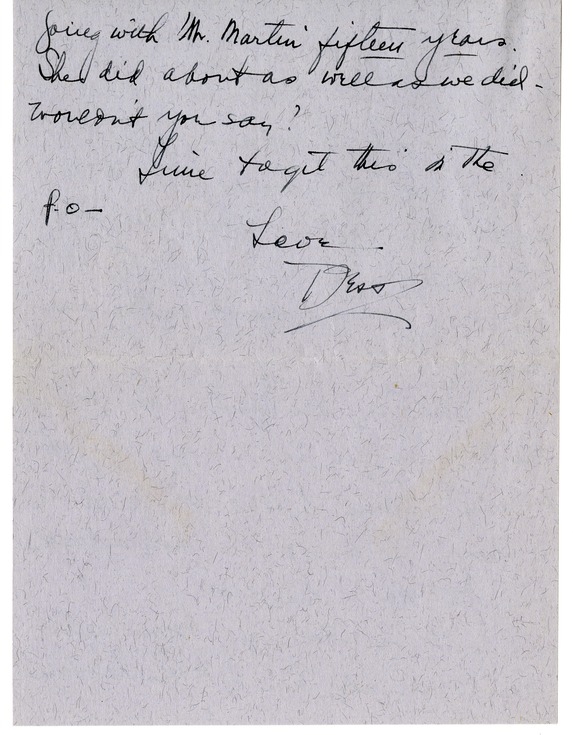 going with Mr. Martin fifteen years.
She did about as well as we did -
wouldn't you say?
Time to get this in the
P.O -
Love
Dess